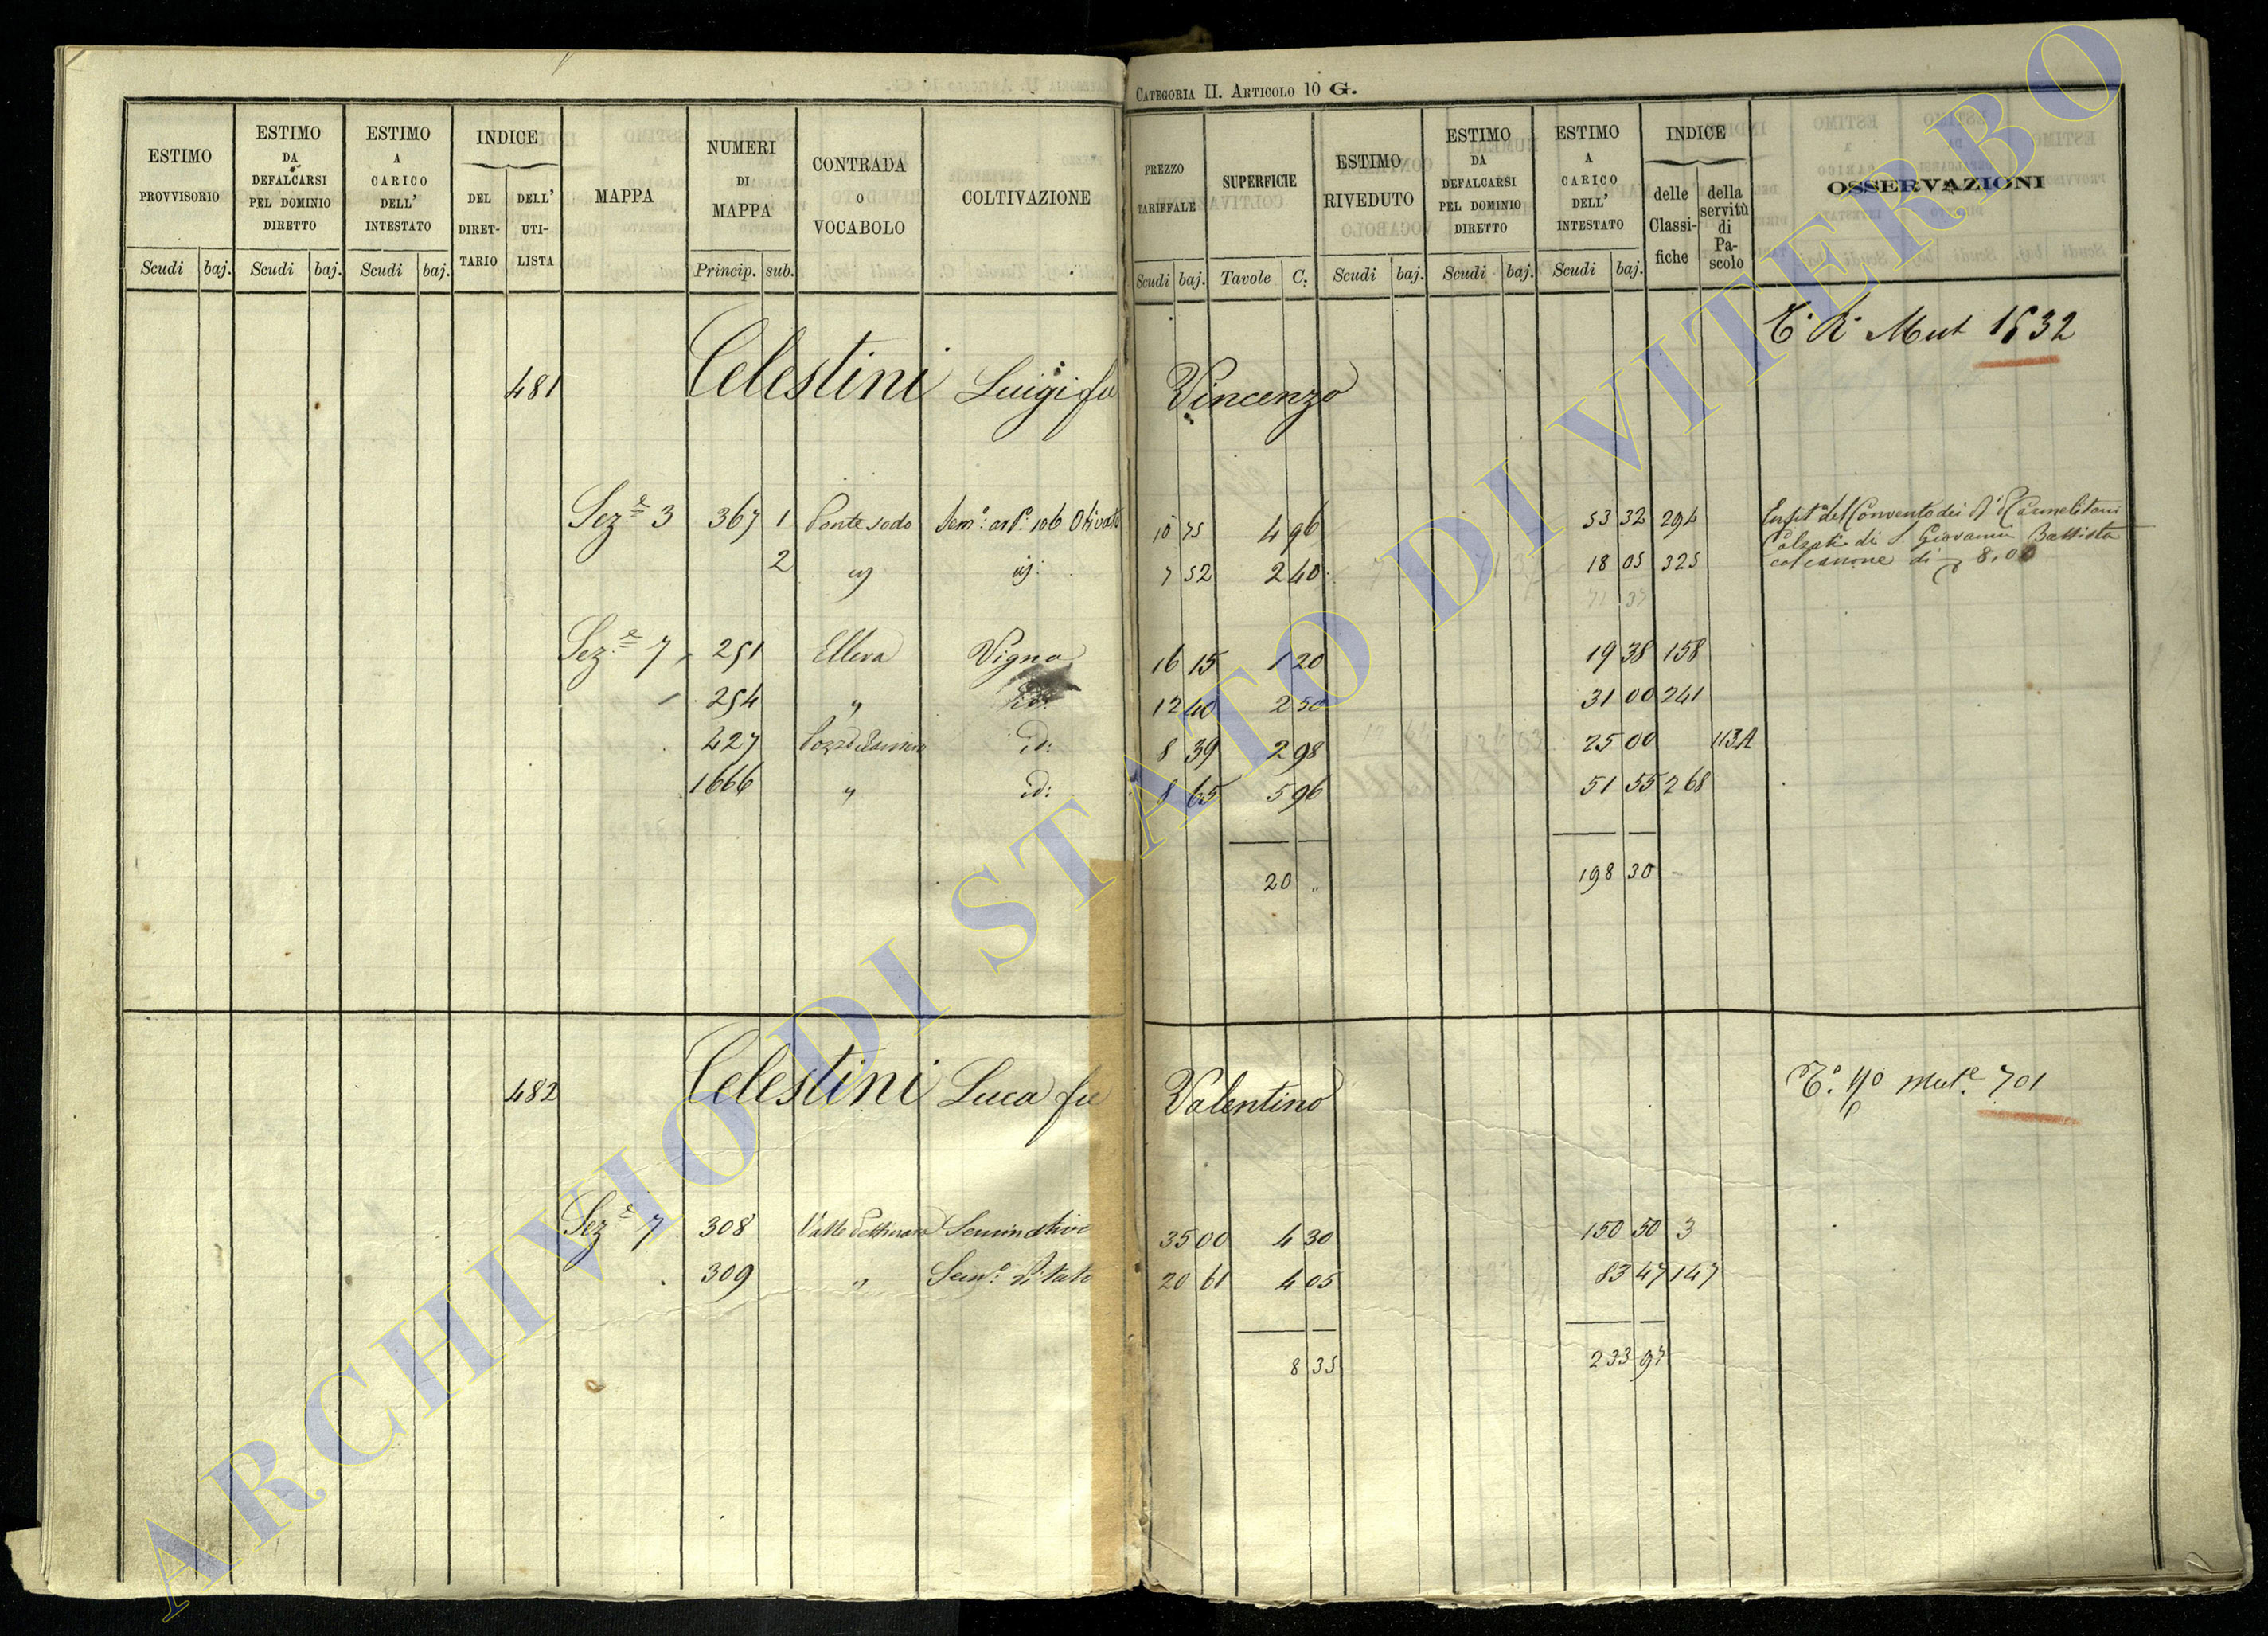 CATEGORIA II. ARTICOLO 10 G.
ESTIMO PROVVISORIO | ESTIMO DA DEFALCARSI PEL DOMINIO DIRETTO | ESTIMO A CARICO DELL' INTESTATO | INDICE DEL DIRET-TARIO | DELL' UTI-LISTA | MAPPA | NUMERI DI MAPPA | CONTRADA O VOCABOLO | COLTIVAZIONE | PREZZO TARIFFALE | SUPERFICIE | ESTIMO RIVEDUTO | ESTIMO DA DEFALCARSI PEL DOMINIO DIRETTO | ESTIMO A CARICO DELL' INTESTATO | INDICE delle Classi-fiche | della servitù di Pa-scolo | OSSERVAZIONI
Scudi | baj. | Scudi | baj. | Scudi | baj. | Princip. | sub. | Scudi | baj. | Tavole | C. | Scudi | baj. | Scudi | baj. | Scudi | baj.
Mut 1632
481 Celestini Luigi fu Vincenzo
Sez.e 3 367 1 Ponte sodo Sem.o 106 Olivato 10 75 4 96 53 32 294 Enfit. del Convento dei Carmelitani
Calzati di S Giovanni Battista
2 7 52 2 40 18 05 325 col canone di 8.00
71 37
Sez.e 7 251 Ellera Vigna 16 15 1 20 19 38 158
254 " id: 12 40 2 50 31 00 241
427 id: 8 39 2 98 25 00 113A
1666 " id: 8 65 5 96 51 55 268
20 " 198 30
482 Celestini Luca fu Valentino
Mut.e 701
Sez.e 7 308 Valle Seminativo 35 00 4 30 150 50 3
309 " Sem.o Vitato 20 61 4 05 83 47 147
8 35 233 97
ARCHIVIO DI STATO DI VITERBO